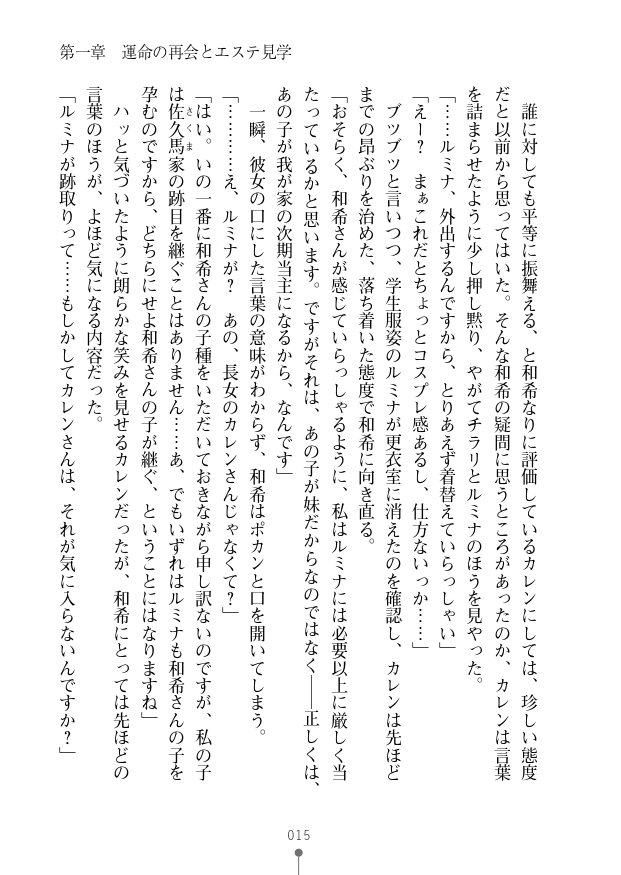 第一章　運命の再会とエステ見学
　誰に対しても平等に振舞える、と和希なりに評価しているカレンにしては、珍しい態度
だと以前から思ってはいた。そんな和希の疑問に思うところがあったのか、カレンは言葉
を詰まらせたように少し押し黙り、やがてチラリとルミナのほうを見やった。
「……ルミナ、外出するんですから、とりあえず着替えていらっしゃい」
「えー？　まぁこれだとちょっとコスプレ感あるし、仕方ないっか……」
　ブツブツと言いつつ、学生服姿のルミナが更衣室に消えたのを確認し、カレンは先ほど
までの昂ぶりを治めた、落ち着いた態度で和希に向き直る。
「おそらく、和希さんが感じていらっしゃるように、私はルミナには必要以上に厳しく当
たっているかと思います。ですがそれは、あの子が妹だからなのではなく――正しくは、
あの子が我が家の次期当主になるから、なんです」
　一瞬、彼女の口にした言葉の意味がわからず、和希はポカンと口を開いてしまう。
「…………え、ルミナが？　あの、長女のカレンさんじゃなくて？」
「はい。いの一番に和希さんの子種をいただいておきながら申し訳ないのですが、私の子
は佐久馬家の跡目を継ぐことはありません……あ、でもいずれはルミナも和希さんの子を
さくま
孕むのですから、どちらにせよ和希さんの子が継ぐ、ということにはなりますね」
　ハッと気づいたように朗らかな笑みを見せるカレンだったが、和希にとっては先ほどの
言葉のほうが、よほど気になる内容だった。
「ルミナが跡取りって……もしかしてカレンさんは、それが気に入らないんですか？」
015